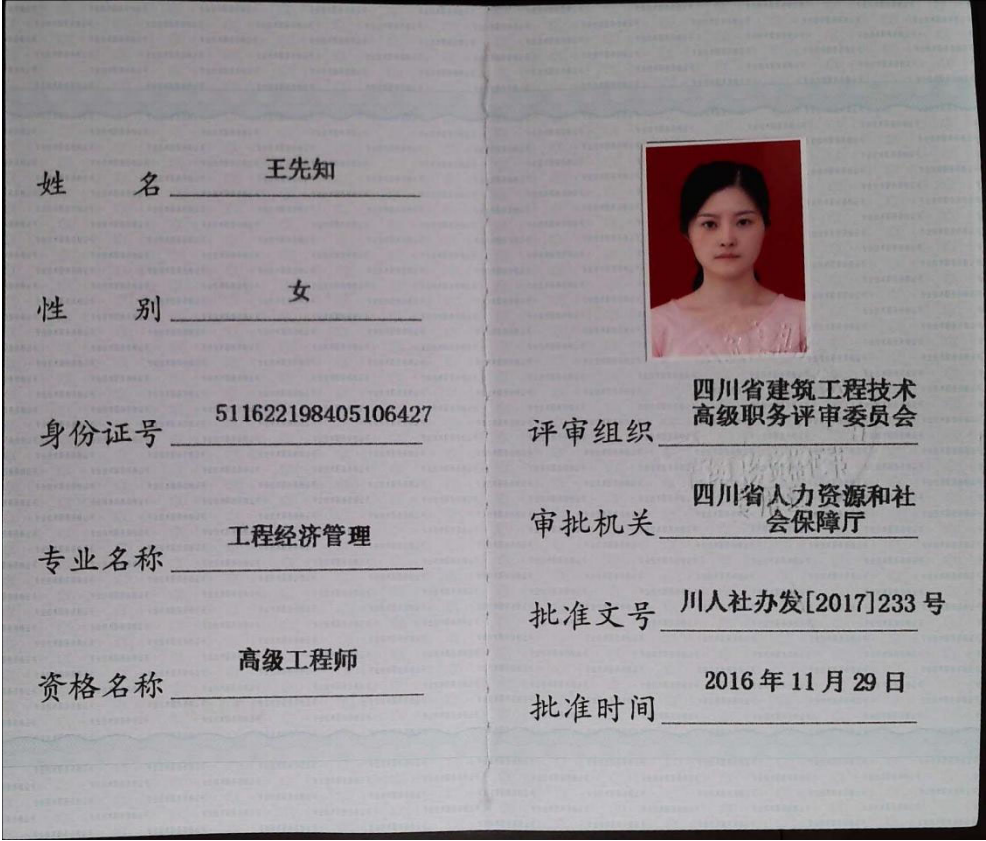 姓名 王先知
性别 女
身份证号 511622198405106427
专业名称 工程经济管理
资格名称 高级工程师
四川省建筑工程技术
评审组织 高级职务评审委员会
四川省人力资源和社
审批机关 会保障厅
批准文号 川人社办发[2017]233号
批准时间 2016年11月29日